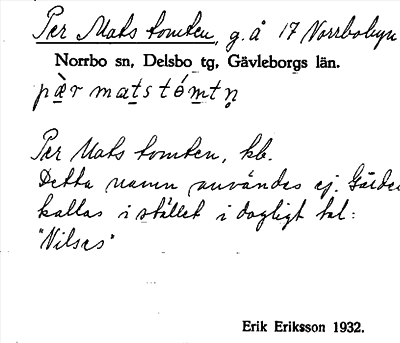 Per Mats tomten, g. å 17 Norrbobyn
Norrbo sn, Delsbo tg, Gävleborgs län.
pæ̀r mats tómtn̥
Per Mats tomten, kb.
Detta namn användes ej. Gården
kallas i stället i dagligt tal:
"Nilses"
Erik Eriksson 1932.